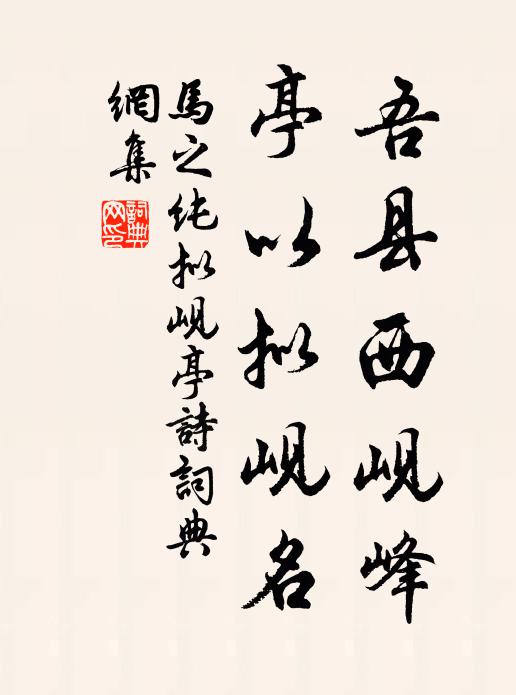 吾县西岘峰
亭以拟岘名
馬之纯拟岘亭詩詞典
網集
詞典网印